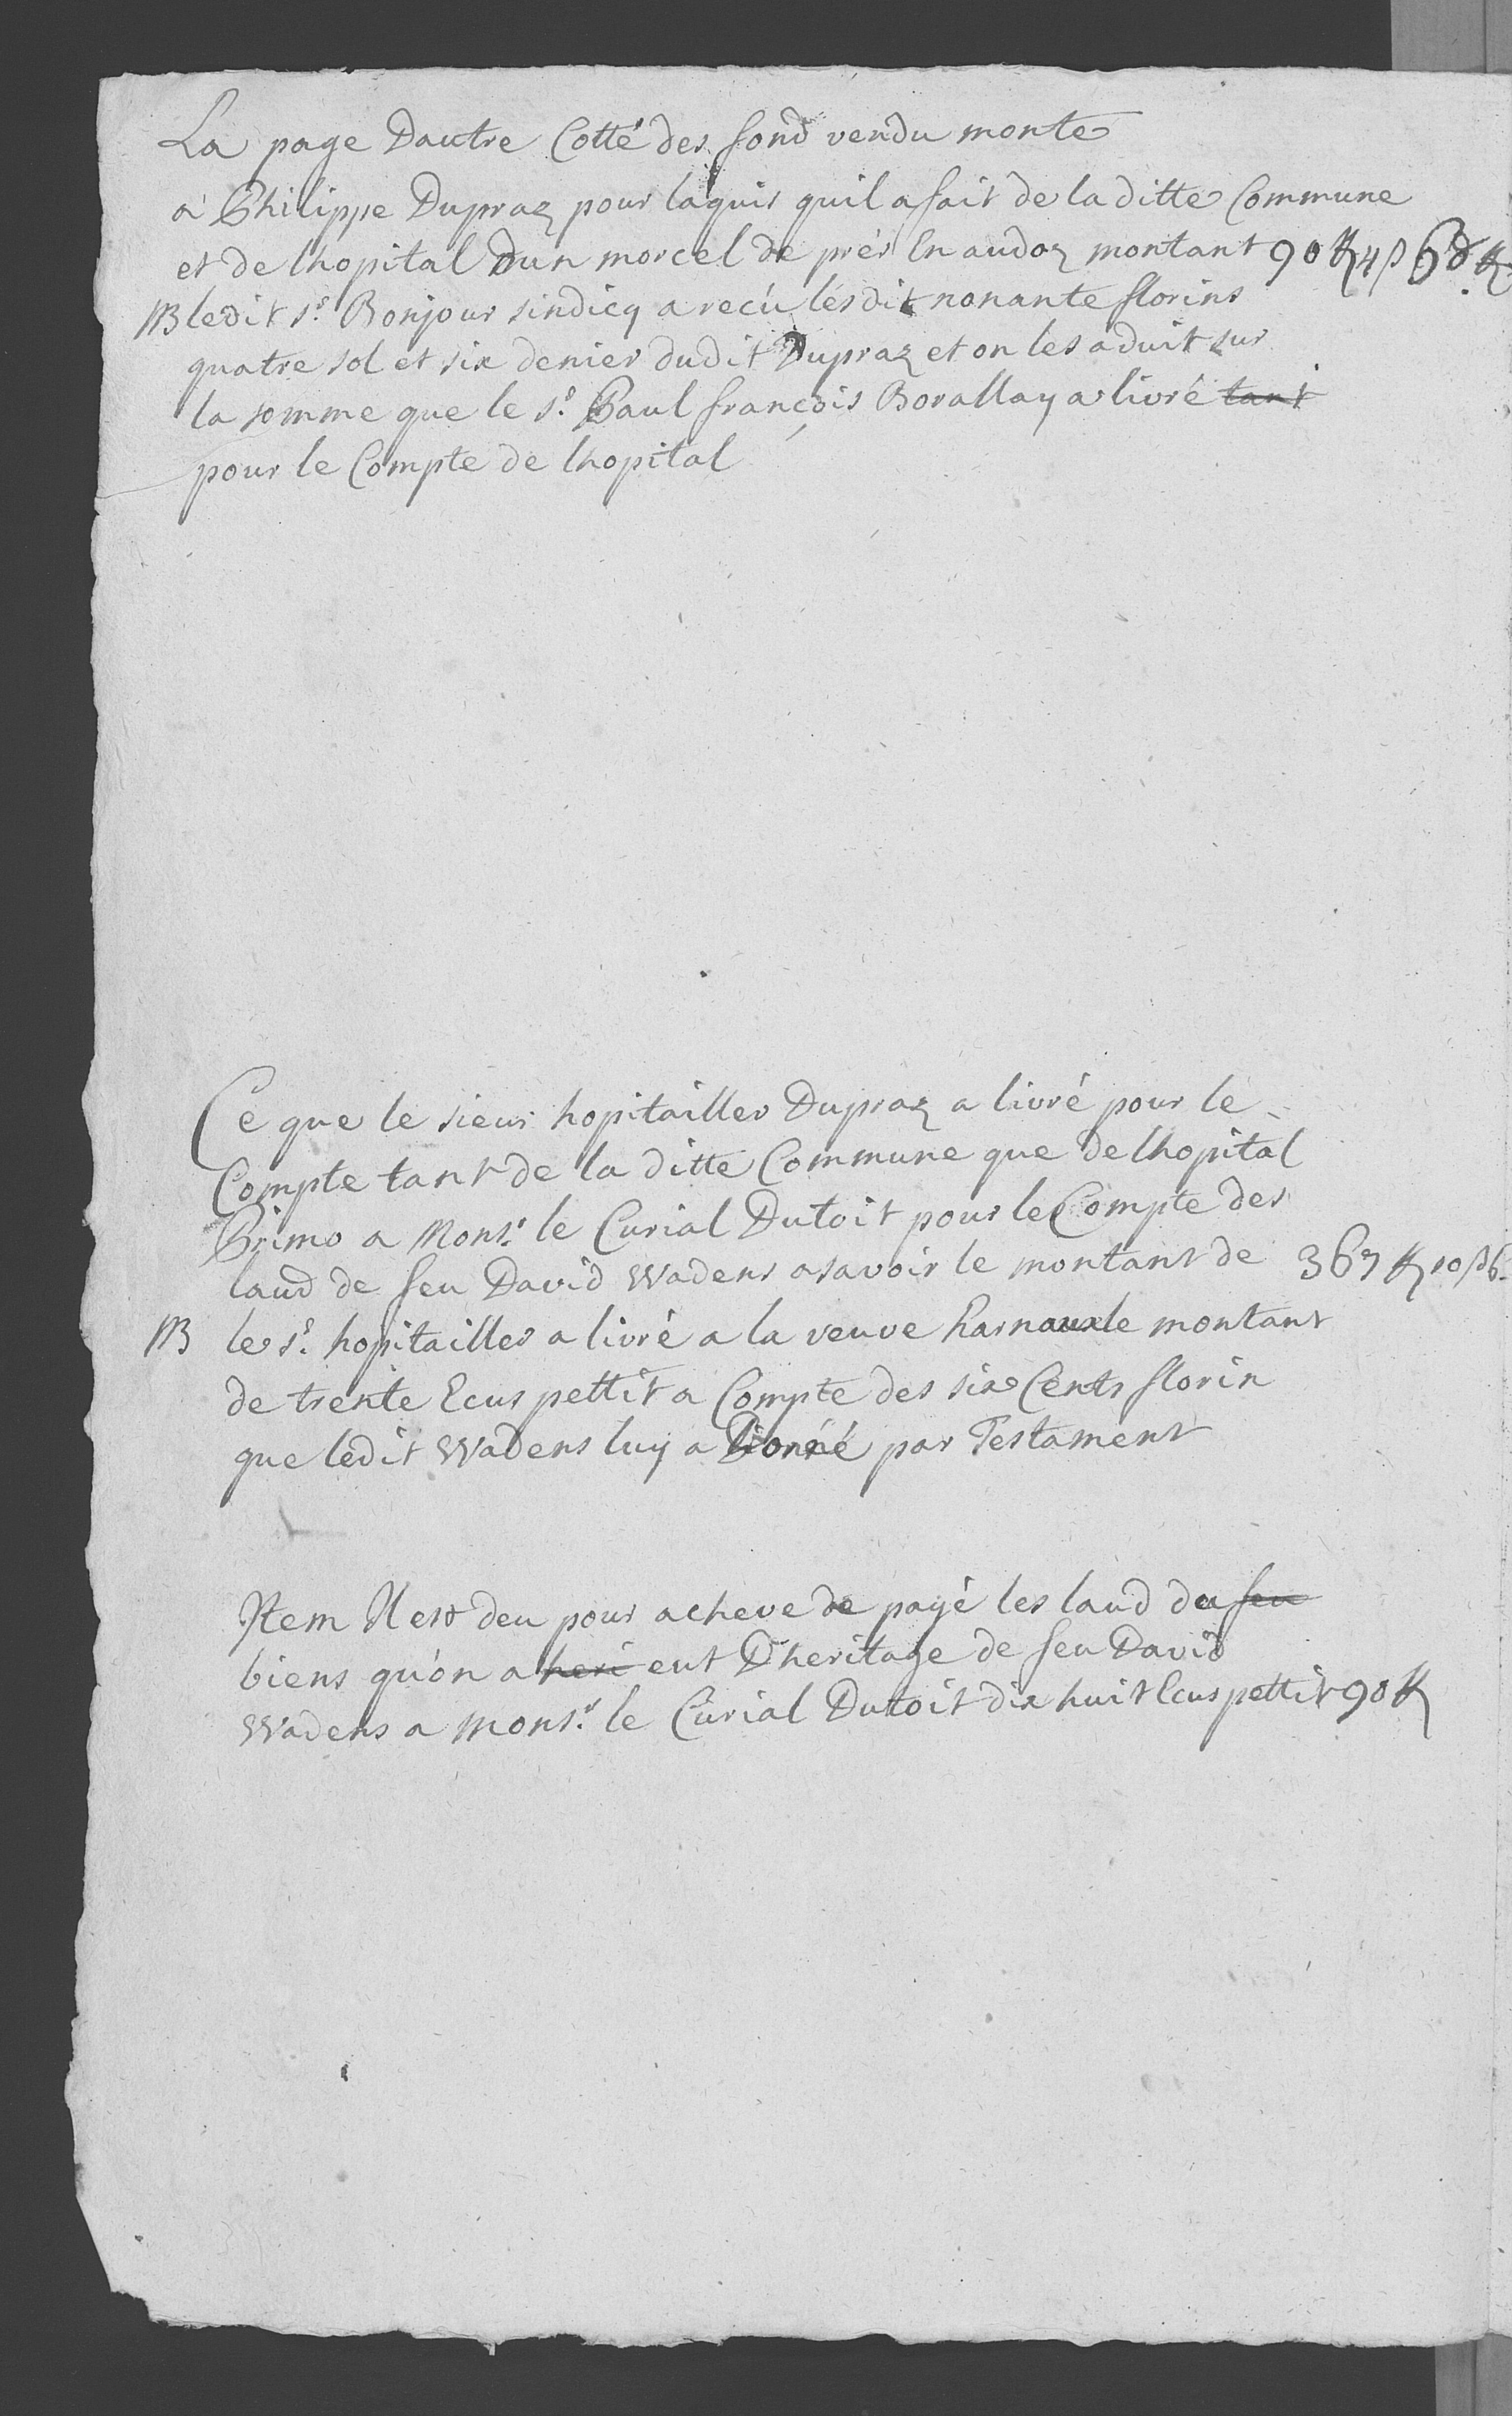 La page Dautre Cotté des fond vendu monte
a Philippe Dupraz pour laquis quil a fait de la ditte Commune
et de lhopital Dun morcel de prés En audoz montant 90 ff 4 ß 6 d
NB ledit Sr. Bonjour sindicq a recü lésdit nonante florins
quatre sol et six denier dudit Dupraz et on les aduit sur
la somme que le Sr. Paul françois Borallay a livré tant
pour le Compte de lhopital
Ce que le sieur hopitailler Dupraz a livré pour le
Compte tant de la ditte Commune que de lhopital
Primo a Monsr. le Curial Dutoit pour le Compte des
laud de feu David Wadens asavoir le montant de 367 ff 10 ß 6
NB le Sr. hopitailler a livré a la veuve harnaux le montant
de trente Ecus pettit a Compte des six Cents florin
que ledit Wadens luy a Donné par Testament
Item Il est deu pour acheve de payé les laud du feu
biens qu'on a heri eut D'heritage de feu David
Wadens a Monsr. le Curial Dutoit dix huit Ecus pettit 90 ff